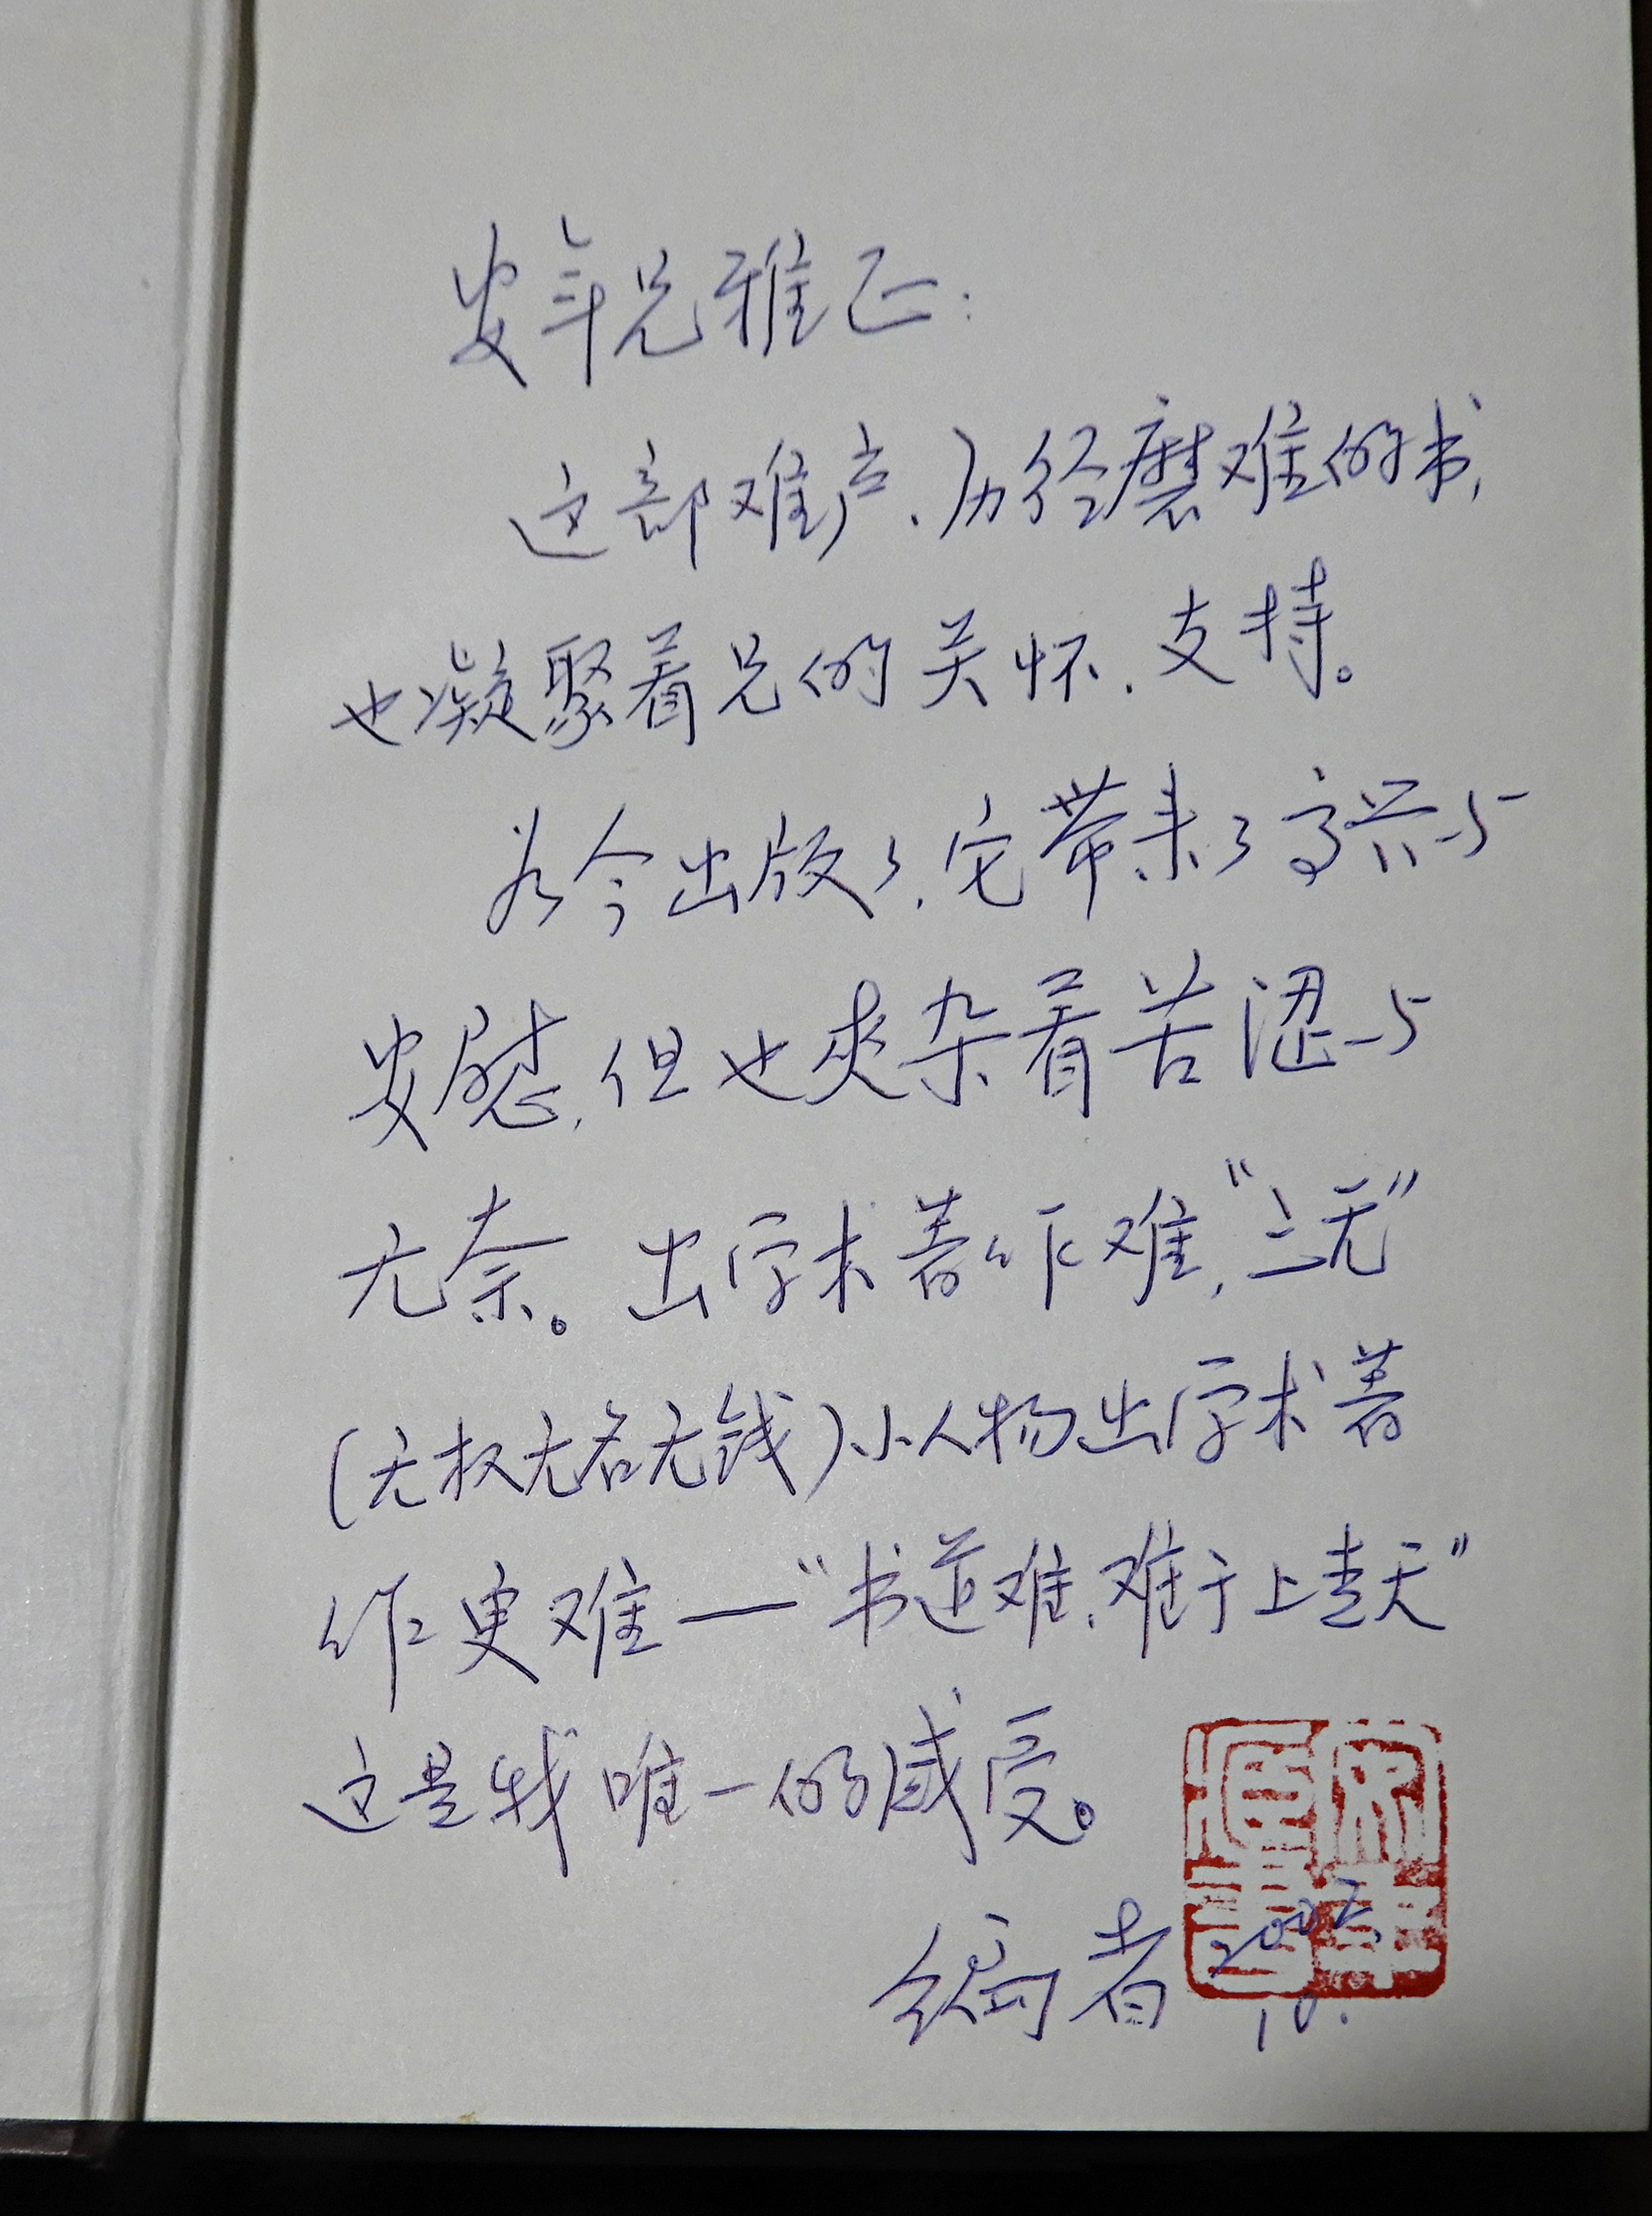 安年兄雅正：
这部难产、历经磨难的书，
也凝聚着兄的关怀、支持。
如今出版了，它带来了高兴与
安慰，但也夹杂着苦涩与
无奈。出学术著作难，“三无”
（无权无名无钱）小人物出学术著
作更难——“书道难，难于上青天”
这是我唯一的感受。
编者 2002.
10.